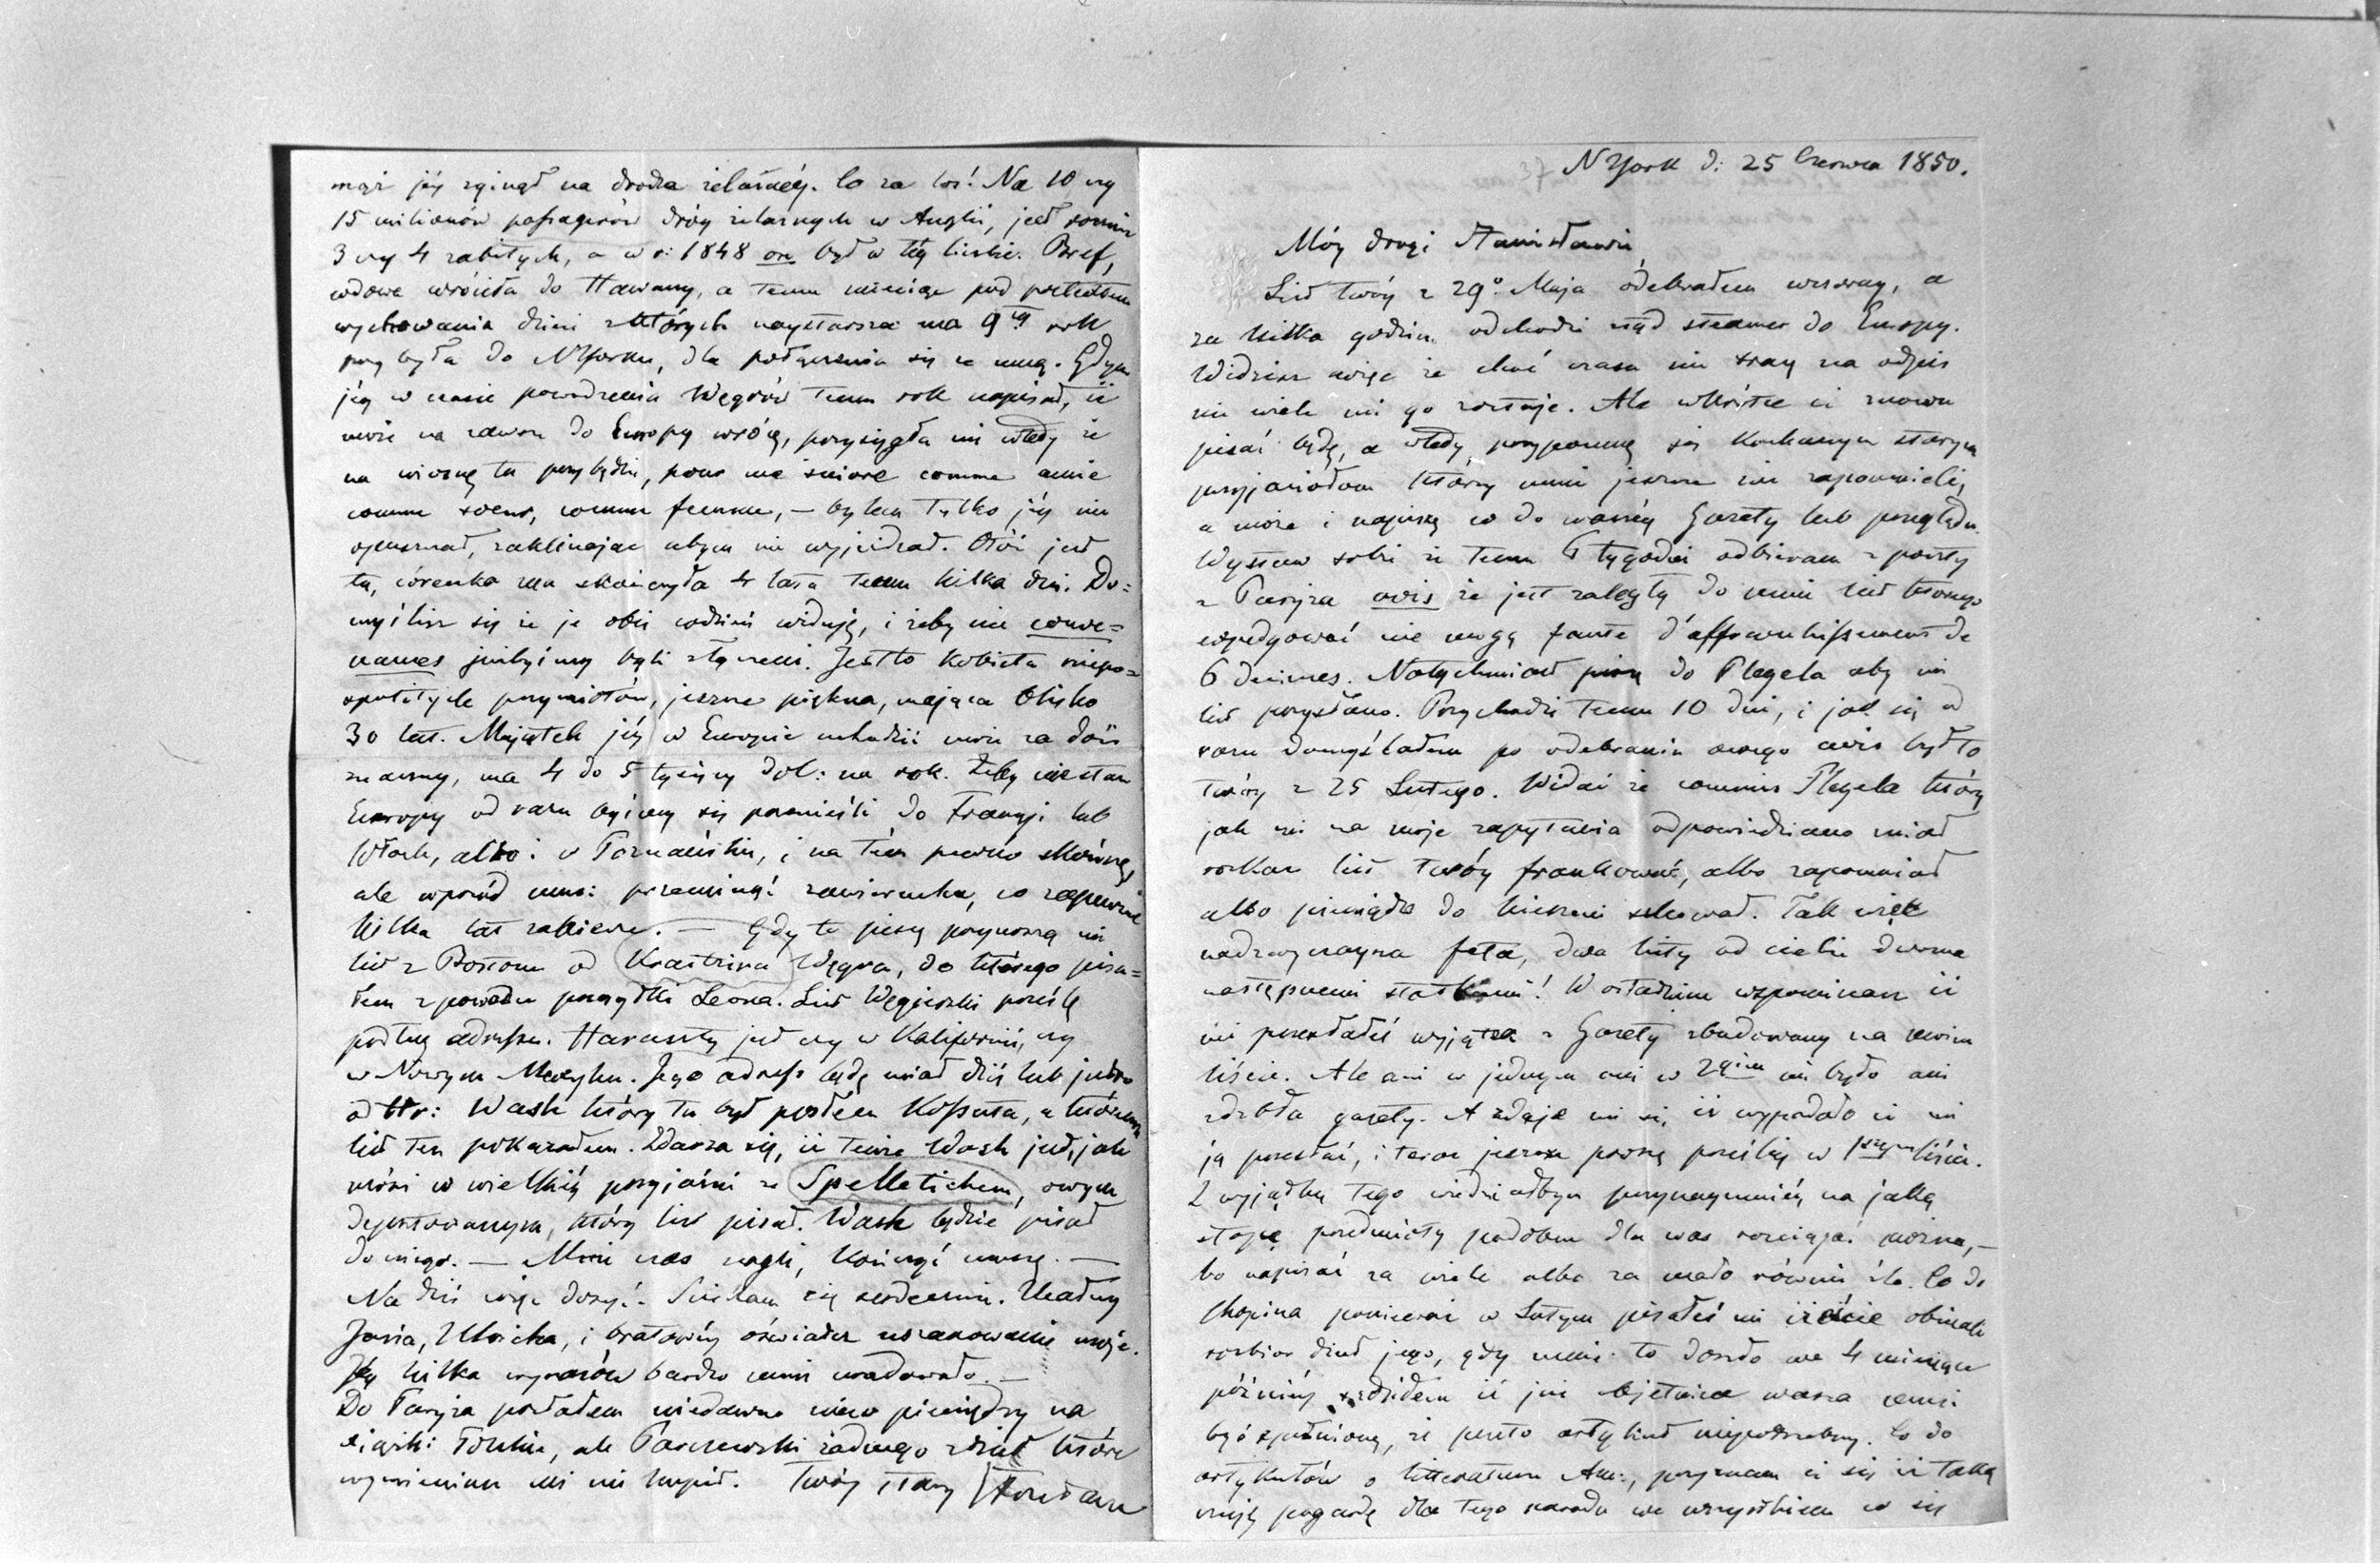 mąż jéj zginął na drodze żelaznéj. Co za los! Na 10 czy
15 milionów passażerów dróg żelaznych w Anglii, jest rocznie
3 czy 4 zabitych, a w r: 1848 on był w téj liczbie. Bref,
wdowa wróciła do Hawany, a temu miesiąc pod pretextem
wychowania dzieci z których naystarsza ma 9ty rok
przybyła do NYorku, dla połączenia się ze mną. Gdym
jéj w czasie powodzenia Węgrów temu rok napisał, iż
może na zawsze do Europy wrócę, przysięgła mi wtedy że
na wiosnę tu przybędzie, pour me suivre comme amie
comme soeur, comme femme, — bylem tylko jéj nie
opuszczał, zaklinając abym nie wyjeżdżał. Otóż jest
tu, córeczka ma skończyła 4 lata temu kilka dni. Do=
myślisz się że je obie codzień widuję, i żeby nie conve=
nances jużbyśmy byli złączeni. Jestto kobieta niepo=
spolitych przymiotów, jeszcze piękna, mająca blisko
30 lat. Majątek jéj w Europie uchodzić może za dość
znaczny, ma 4 do 5 tysięcy dol: na rok. Żeby nie stan
Europy od razu byśmy się przenieśli do Francyi lub
Włoch, albo i w Poznańskie, i na tém pewno skończę,
ale wprzód musi przeminąć zawierucha, co zapewne
kilka lat zabierze. — Gdy to piszę przynoszą mi
list z Bostonu od Węgra, do którego pisa=
łem z powodu przesyłki Leona. List Węgierski prześlę
podług adressu. Haraszty jest czy w Kalifornii, czy
w Nowym Mexyku. Jego adress będę miał dziś lub jutro
od Wash który tu był posłem Kossuta, a któremu
list ten pokazałem. Zdarza się, iż tenże Wash jest, jak
mówi w wielkiéj przyjaźni ze Spelletichem, owym
deputowanym, który list pisał. Wash będzie pisał
do niego. — Mnie czas nagli, kończyć muszę. —
Na dziś więc dosyć. Ściskam cię serdecznie.
Jasia, Ulricha, i bratowéj oświadcz uszanowanie moje.
Jéj kilka wyrazów bardzo mnie uradowało. —
Do Paryża posłałem niedawno nieco pieniędzy na
książki Polskie, ale żadnego z dzieł które
wymieniam mi nie kupił. Twój stary Fontana
37 NYork d: 25 Czerwca 1850.
Móy drogi Stanisławie,
List twóy z 29o Maja odebrałem wczoray, a
za kilka godzin odchodzi ztąd steamer do Europy.
Widzisz więc że choć czasu nie tracę na odpis
nie wiele mi go zostaje. Ale wkrótce ci znowu
pisać będę, a wtedy przypomnę się kochanym starym
przyjaciołom którzy mnie jeszcze nie zapomnieli,
a może i napiszę co do waszéj Gazety lub przeglądu.
Wystaw sobie że temu 6 tygodni odbieram z poczty
z Paryża avis że jest zaległy do mnie list którego
expedyować nie mogą faute d'affranchissement de
6 decimes. Natychmiast piszę do Plegela aby mi
list przysłano. Przychodzi temu 10 dni, i jak się od
razu domyślałem po odebraniu owego avis był to
twóy z 25 Lutego. Widać że commis Plegela który
jak mi na moje zapytania odpowiedziano miał
rozkaz list twóy frankować, albo zapomniał
albo pieniądze do kieszeni schował. Tak więc
nadzwyczayna feta, dwa listy od ciebie dwoma
następnemi statkami! W ostatnim wspominasz iż
mi przesłałeś wyjątek z Gazety zbudowany na moim
liście. Ale ani w jednym ani w 2gim nie było ani
zdzbła gazety. A zdaje mi się, iż wypadało ci mi
ją przesłać, i teraz jeszcze proszę prześlij w 1szym liście.
Z wyjątku tego wiedziałbym przynaymniéj na jaką
stopę przedmioty podobne dla was rozciągać można, —
bo napisać za wiele albo za mało równie źle. Co do
Chopina ponieważ w Lutym pisałeś mi iżeście obiecali
rozbior dzieł jego, gdy mnie to doszło we 4 miesiące
późniéj sądziłem iż już obietnica wasza musi
być spełnioną, że przeto artykuł niepotrzebny. Co do
artykułów o litteraturze Am:, przyznam ci się iż taką
czuję pogardę dla tego narodu we wszystkiem co się